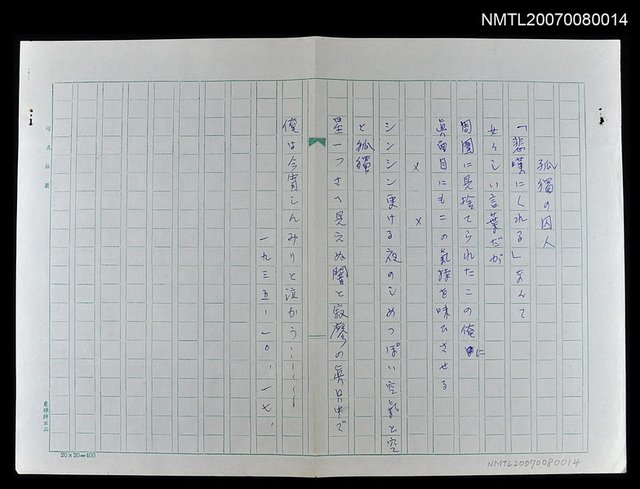 NMTL20070080014
孤獨の囚人
「悲嘆にくれる」なんて
女々しい言葉だが
周圍に見捨てられたこの俺に
眞面目にもこの氣持を味ひさせる
× ×
シンシン更ける夜のしめつぽい空氣と空
と孤獨
星一つさへ見えぬ闇と寂寥の眞只中で
俺は今宵しんみりと泣かう……
一九三五・一〇・一七、
20×20=400
NMTL20070080014